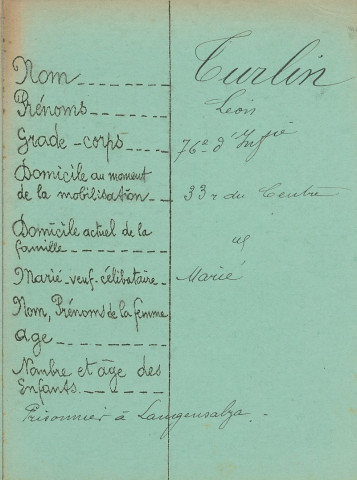 Nom Turlin
Prénoms Léon
Grade-corps 76e d'Infie
Domicile au moment
de la mobilisation 33 r du Centre
Domicile actuel de la
famille id
Marié-veuf-célibataire Marié
Nom, Prénoms de la femme
age
Nombre et âge des
Enfants
Prisonnier à Langensalza.